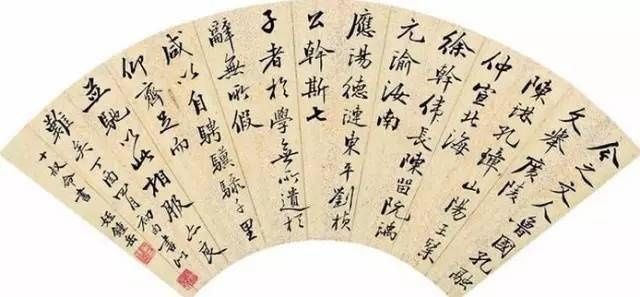 今之文人魯國孔融
文舉廣陵
陳琳孔璋山陽王粲
仲宣北海
徐幹偉長陳留阮瑀
元渝汝南
應湯德璉東平劉楨
公幹斯七
子者於學無所遺於
辭無所假
咸以自騁驥騄千里
仰齊足而
並馳以此相服亦良
難矣丁酉四月初旬書
十叔命書